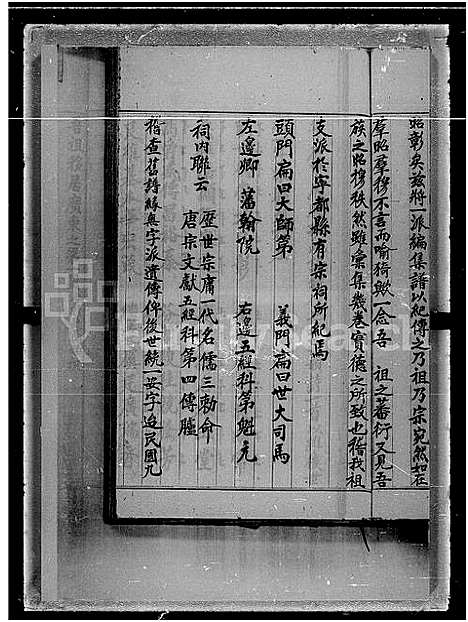 昭彰矣茲將一派編集譜以紀傳之乃祖乃宗宛然如在
羣昭羣穆不言而喻猗歟一念吾 祖之蕃衍又見吾
族之昭穆秩然雖彙集幾卷實德之所致也稽我祖
支派於宁都縣有宗祠所紀焉
頭門扁曰大師第 義門扁曰世大司馬
左邊卿 藩翰院 右邊五經科第魁元
祠內聯云 歷世宗庸一代名儒三勅命
唐宋文獻五經科第四傳臚
稽查舊譜緣無字派遺傳俾後世統一安字迨民國九
FamilySearch